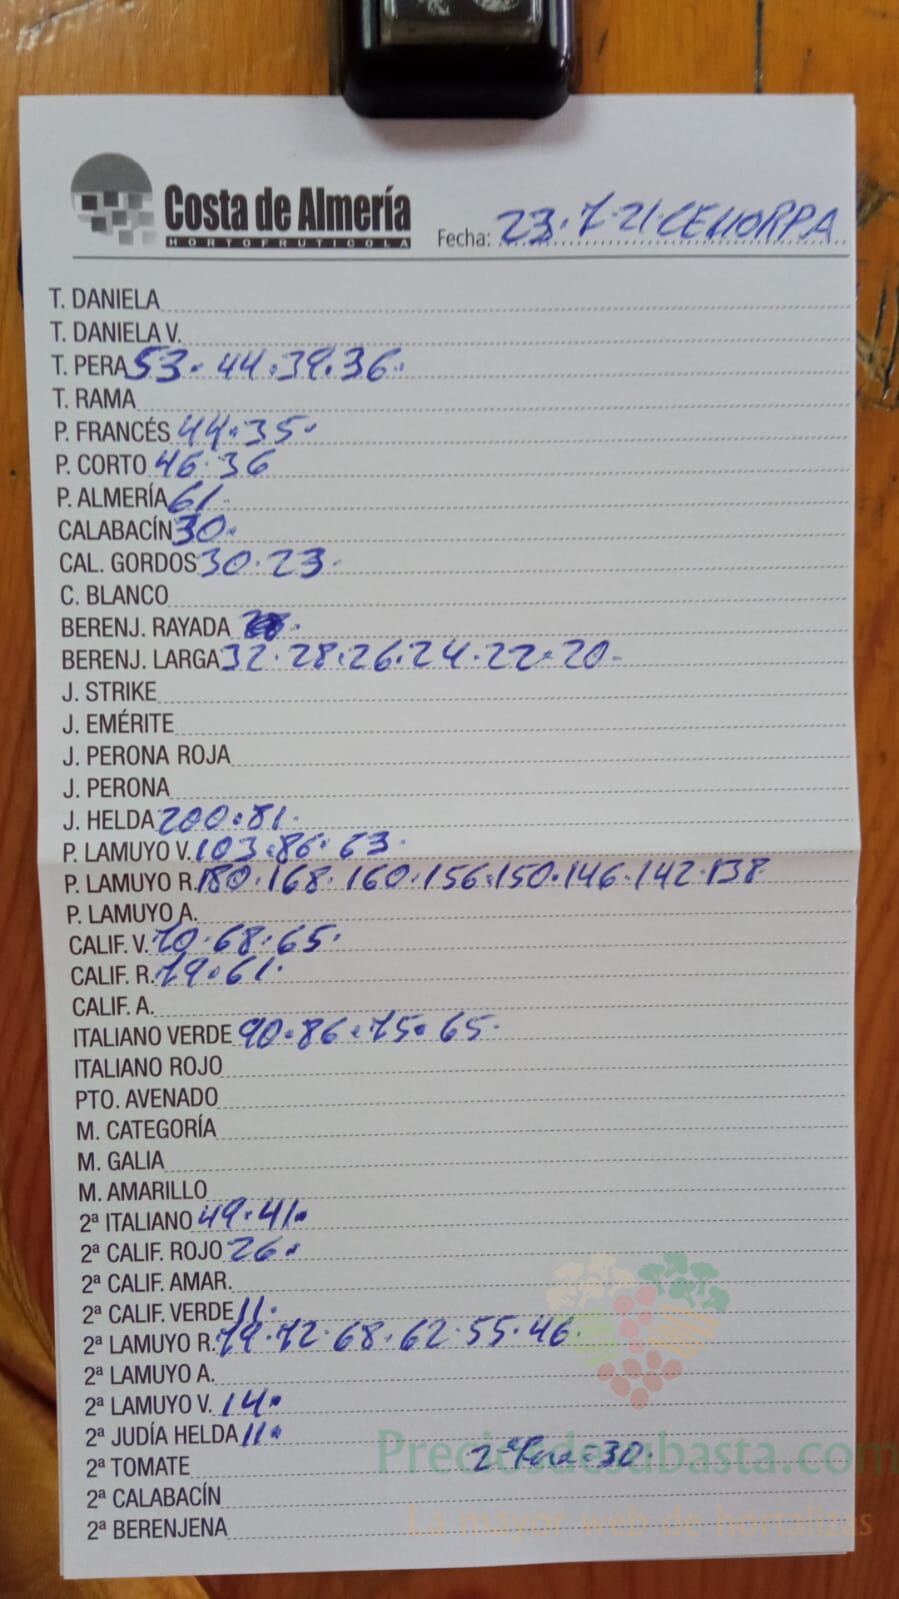 Costa de Almería
HORTOFRUTICOLA
Fecha: 23·7·21·CEHORPA
T. DANIELA
T. DANIELA V.
T. PERA 53·44·39·36·
T. RAMA
P. FRANCÉS 44·35·
P. CORTO 46·36
P. ALMERÍA 61·
CALABACÍN 30·
CAL. GORDOS 30·23·
C. BLANCO
BERENJ. RAYADA
BERENJ. LARGA 32·28·26·24·22·20·
J. STRIKE
J. EMÉRITE
J. PERONA ROJA
J. PERONA
J. HELDA 200·81·
P. LAMUYO V. 103·86·63·
P. LAMUYO R. 180·168·160·156·150·146·142·138
P. LAMUYO A.
CALIF. V. 70·68·65·
CALIF. R. 79·61·
CALIF. A.
ITALIANO VERDE 90·86·75·65·
ITALIANO ROJO
PTO. AVENADO
M. CATEGORÍA
M. GALIA
M. AMARILLO
2ª ITALIANO 49·41·
2ª CALIF. ROJO 26·
2ª CALIF. AMAR.
2ª CALIF. VERDE 11·
2ª LAMUYO R. 79·72·68·62·55·46·
2ª LAMUYO A.
2ª LAMUYO V. 14·
2ª JUDÍA HELDA 11·
2ª TOMATE 2ª Pera=30·
2ª CALABACÍN
2ª BERENJENA
Preciosdesubasta.com
La mayor web de hortalizas